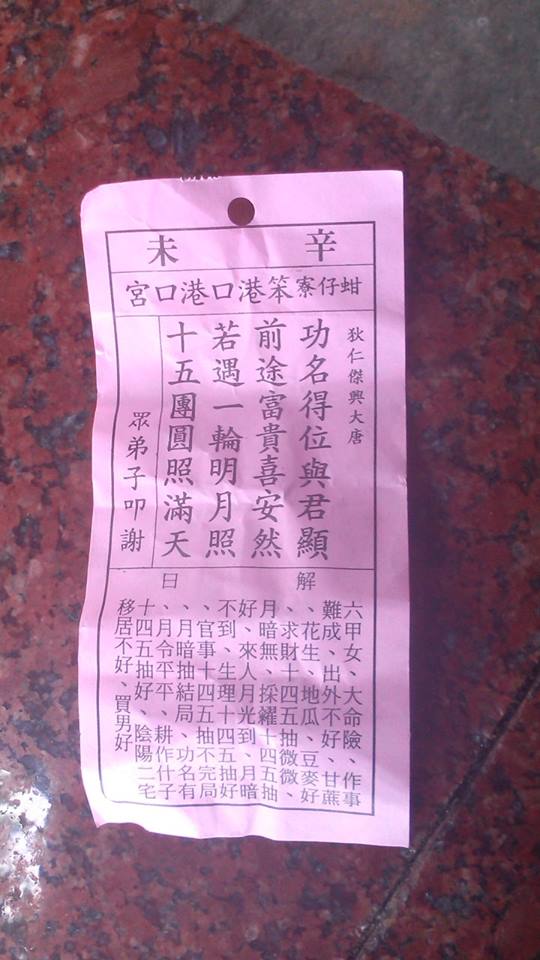 辛未
蚶仔寮笨港口港口宮
狄仁傑興大唐
功名得位與君顯
前途富貴喜安然
若遇一輪明月照
十五團圓照滿天
眾弟子叩謝
解曰
六甲女、大命險、作事
難成、出外不好、甘蔗
、花生、地瓜、豆麥好
、求財十四五抽微微、
月暗無、採十四五抽、
好、來人月光到、月暗
不到、生理十四五抽好
、官事十四五抽不完局
、月暗抽結局、功名有
、月令平平、耕作什子
十四五抽好、陰陽二宅
移居不好、買男好